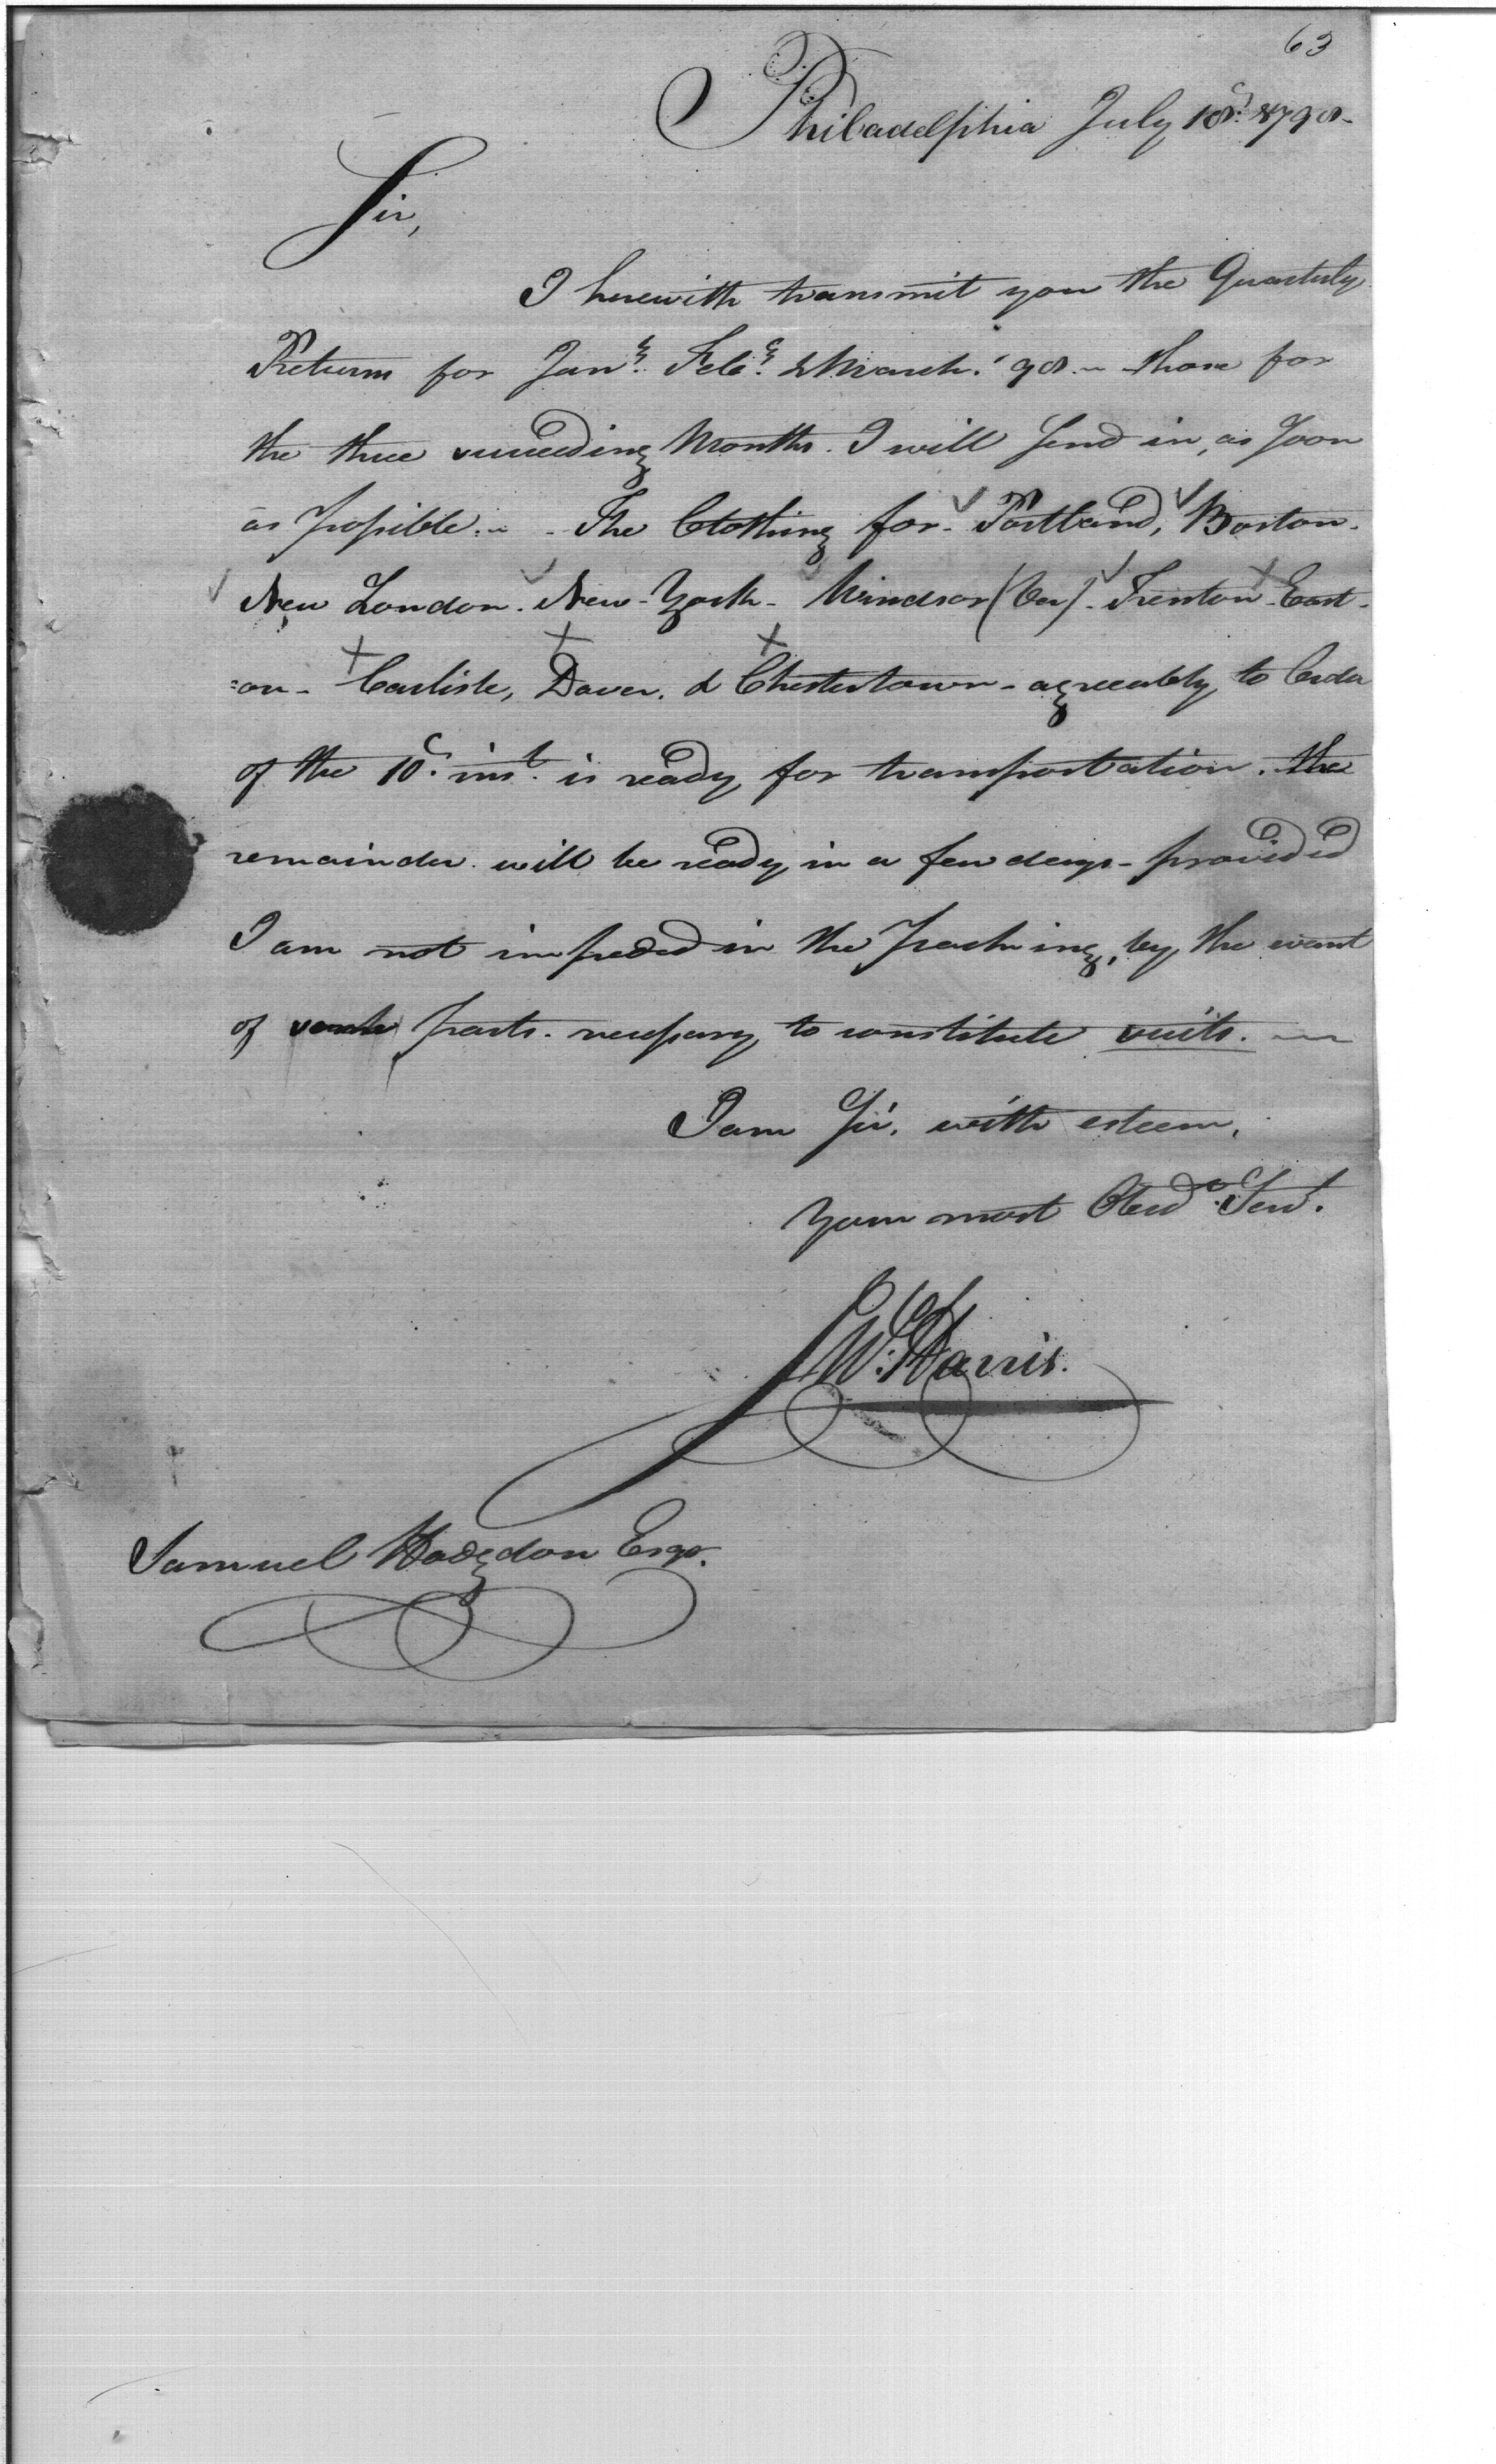 63
Philadelphia July 18th. 1798-
Sir,
I herewith transmit you the Quarterly
Returns for Jany. Feby. & March. '98. - those for
the three succeeding Months. I will send in, as soon
as possible. - The Clothing for - Portland, Boston.
New London. New-York - Windsor (Ver) - Trenton - East-
=on - Carlisle, Dover. & Chestertown - agreeably to Order
of the 10th. inst. is ready for transportation. the
remainder will be ready in a few days - provided
I am not impeded in the packing, by the want
of some parts. necessary to constitute suits. -
I am Sir, with esteem,
Your most Obedt. Servt.
JW: Harris.
Samuel Hodgdon Esqr.